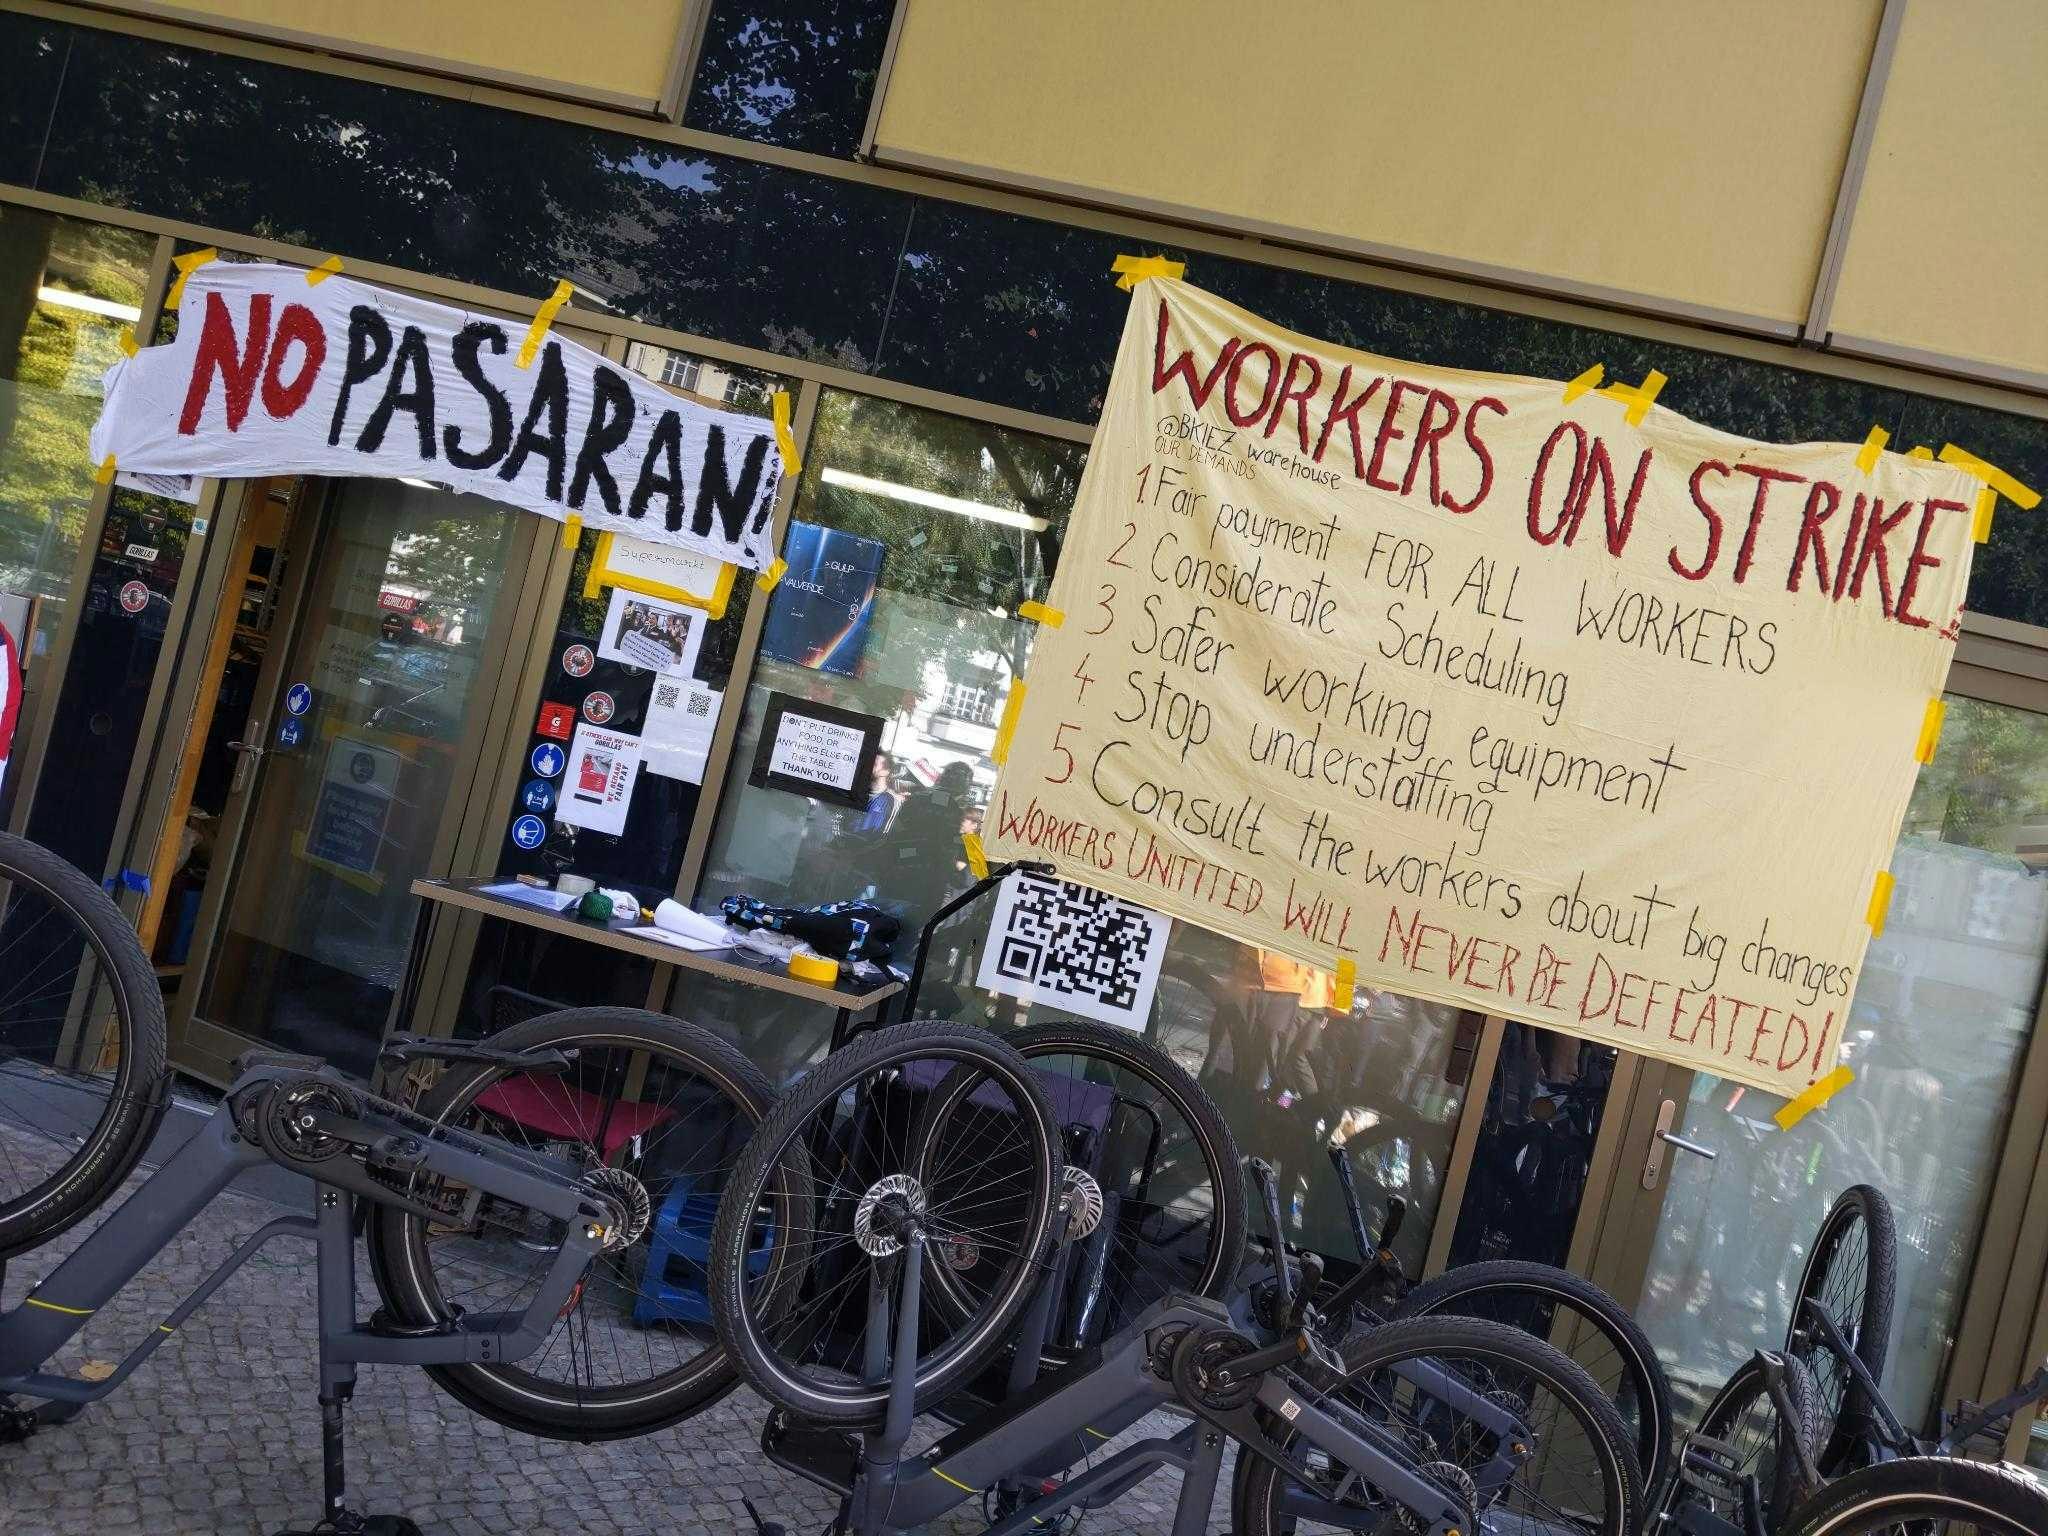 NO PASARAN!
WORKERS ON STRIKE.
@BKIEZ warehouse
OUR DEMANDS
1. Fair payment FOR ALL WORKERS
2 Considerate Scheduling
3 Safer working equipment
4 Stop understaffing
5. Consult the workers about big changes
WORKERS UNITITED WILL NEVER BE DEFEATED!
Supermarkt
GORILLAS
GORILLAS
> GULP
VALVERDE
DON'T PUT DRINKS,
FOOD, OR
ANYTHING ELSE ON
THE TABLE.
THANK YOU!
IF OTHERS CAN, WHY CAN'T
GORILLAS
WE DEMAND
FAIR PAY
SCHWALBE MARATHON E PLUS
MARATHON E PLUS